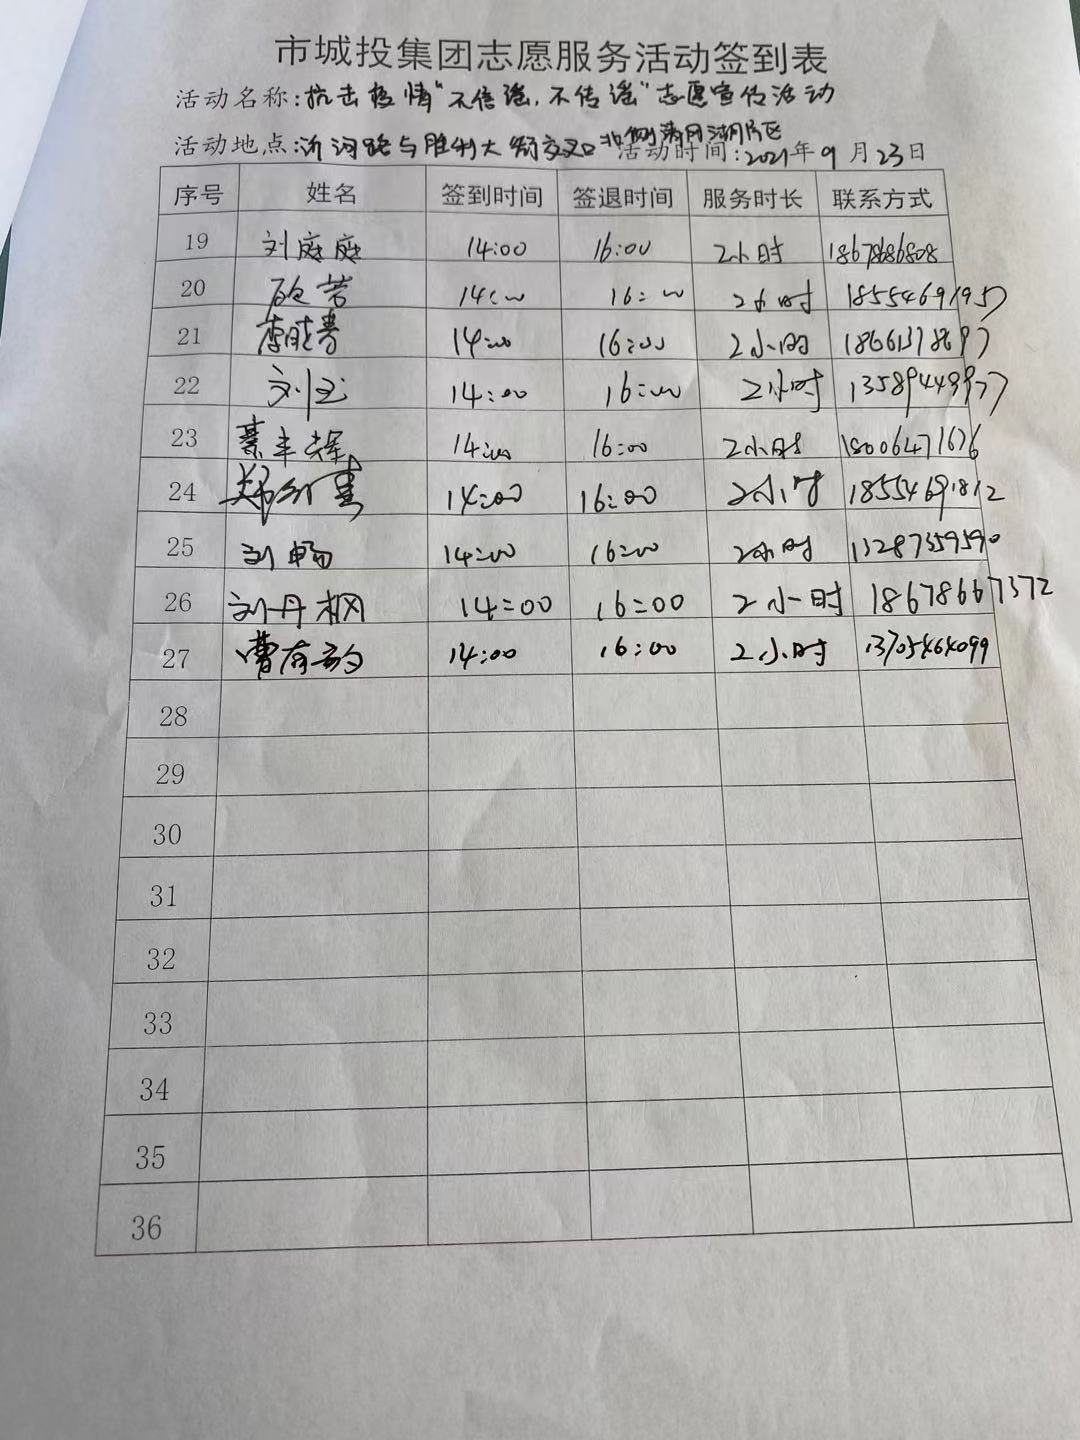 市城投集团志愿服务活动签到表
活动名称:抗击疫情"不信谣,不传谣"志愿宣传活动
活动地点:沂河路与胜利大街交叉口北侧清风湖片区 活动时间:2021年9月23日
序号 姓名 签到时间 签退时间 服务时长 联系方式
19 刘庭庭 14:00 16:00 2小时 18678686808
20 14:00 16:00 2小时 18554691957
21 14:00 16:00 2小时 18661378697
22 刘玉 14:00 16:00 2小时 13589449977
23 綦丰辉 14:00 16:00 2小时 18006471676
24 14:00 16:00 2小时 18554691812
25 刘畅 14:00 16:00 2小时 13287359590
26 刘丹枫 14:00 16:00 2小时 18678667372
27 14:00 16:00 2小时 13705464099
28
29
30
31
32
33
34
35
36